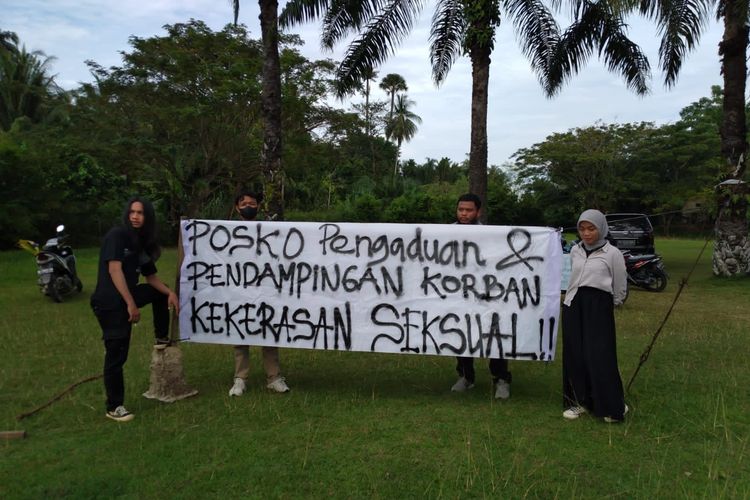 POSKO Pengaduan &
PENDAMPINGAN KORBAN
KEKERASAN SEKSUAL!!